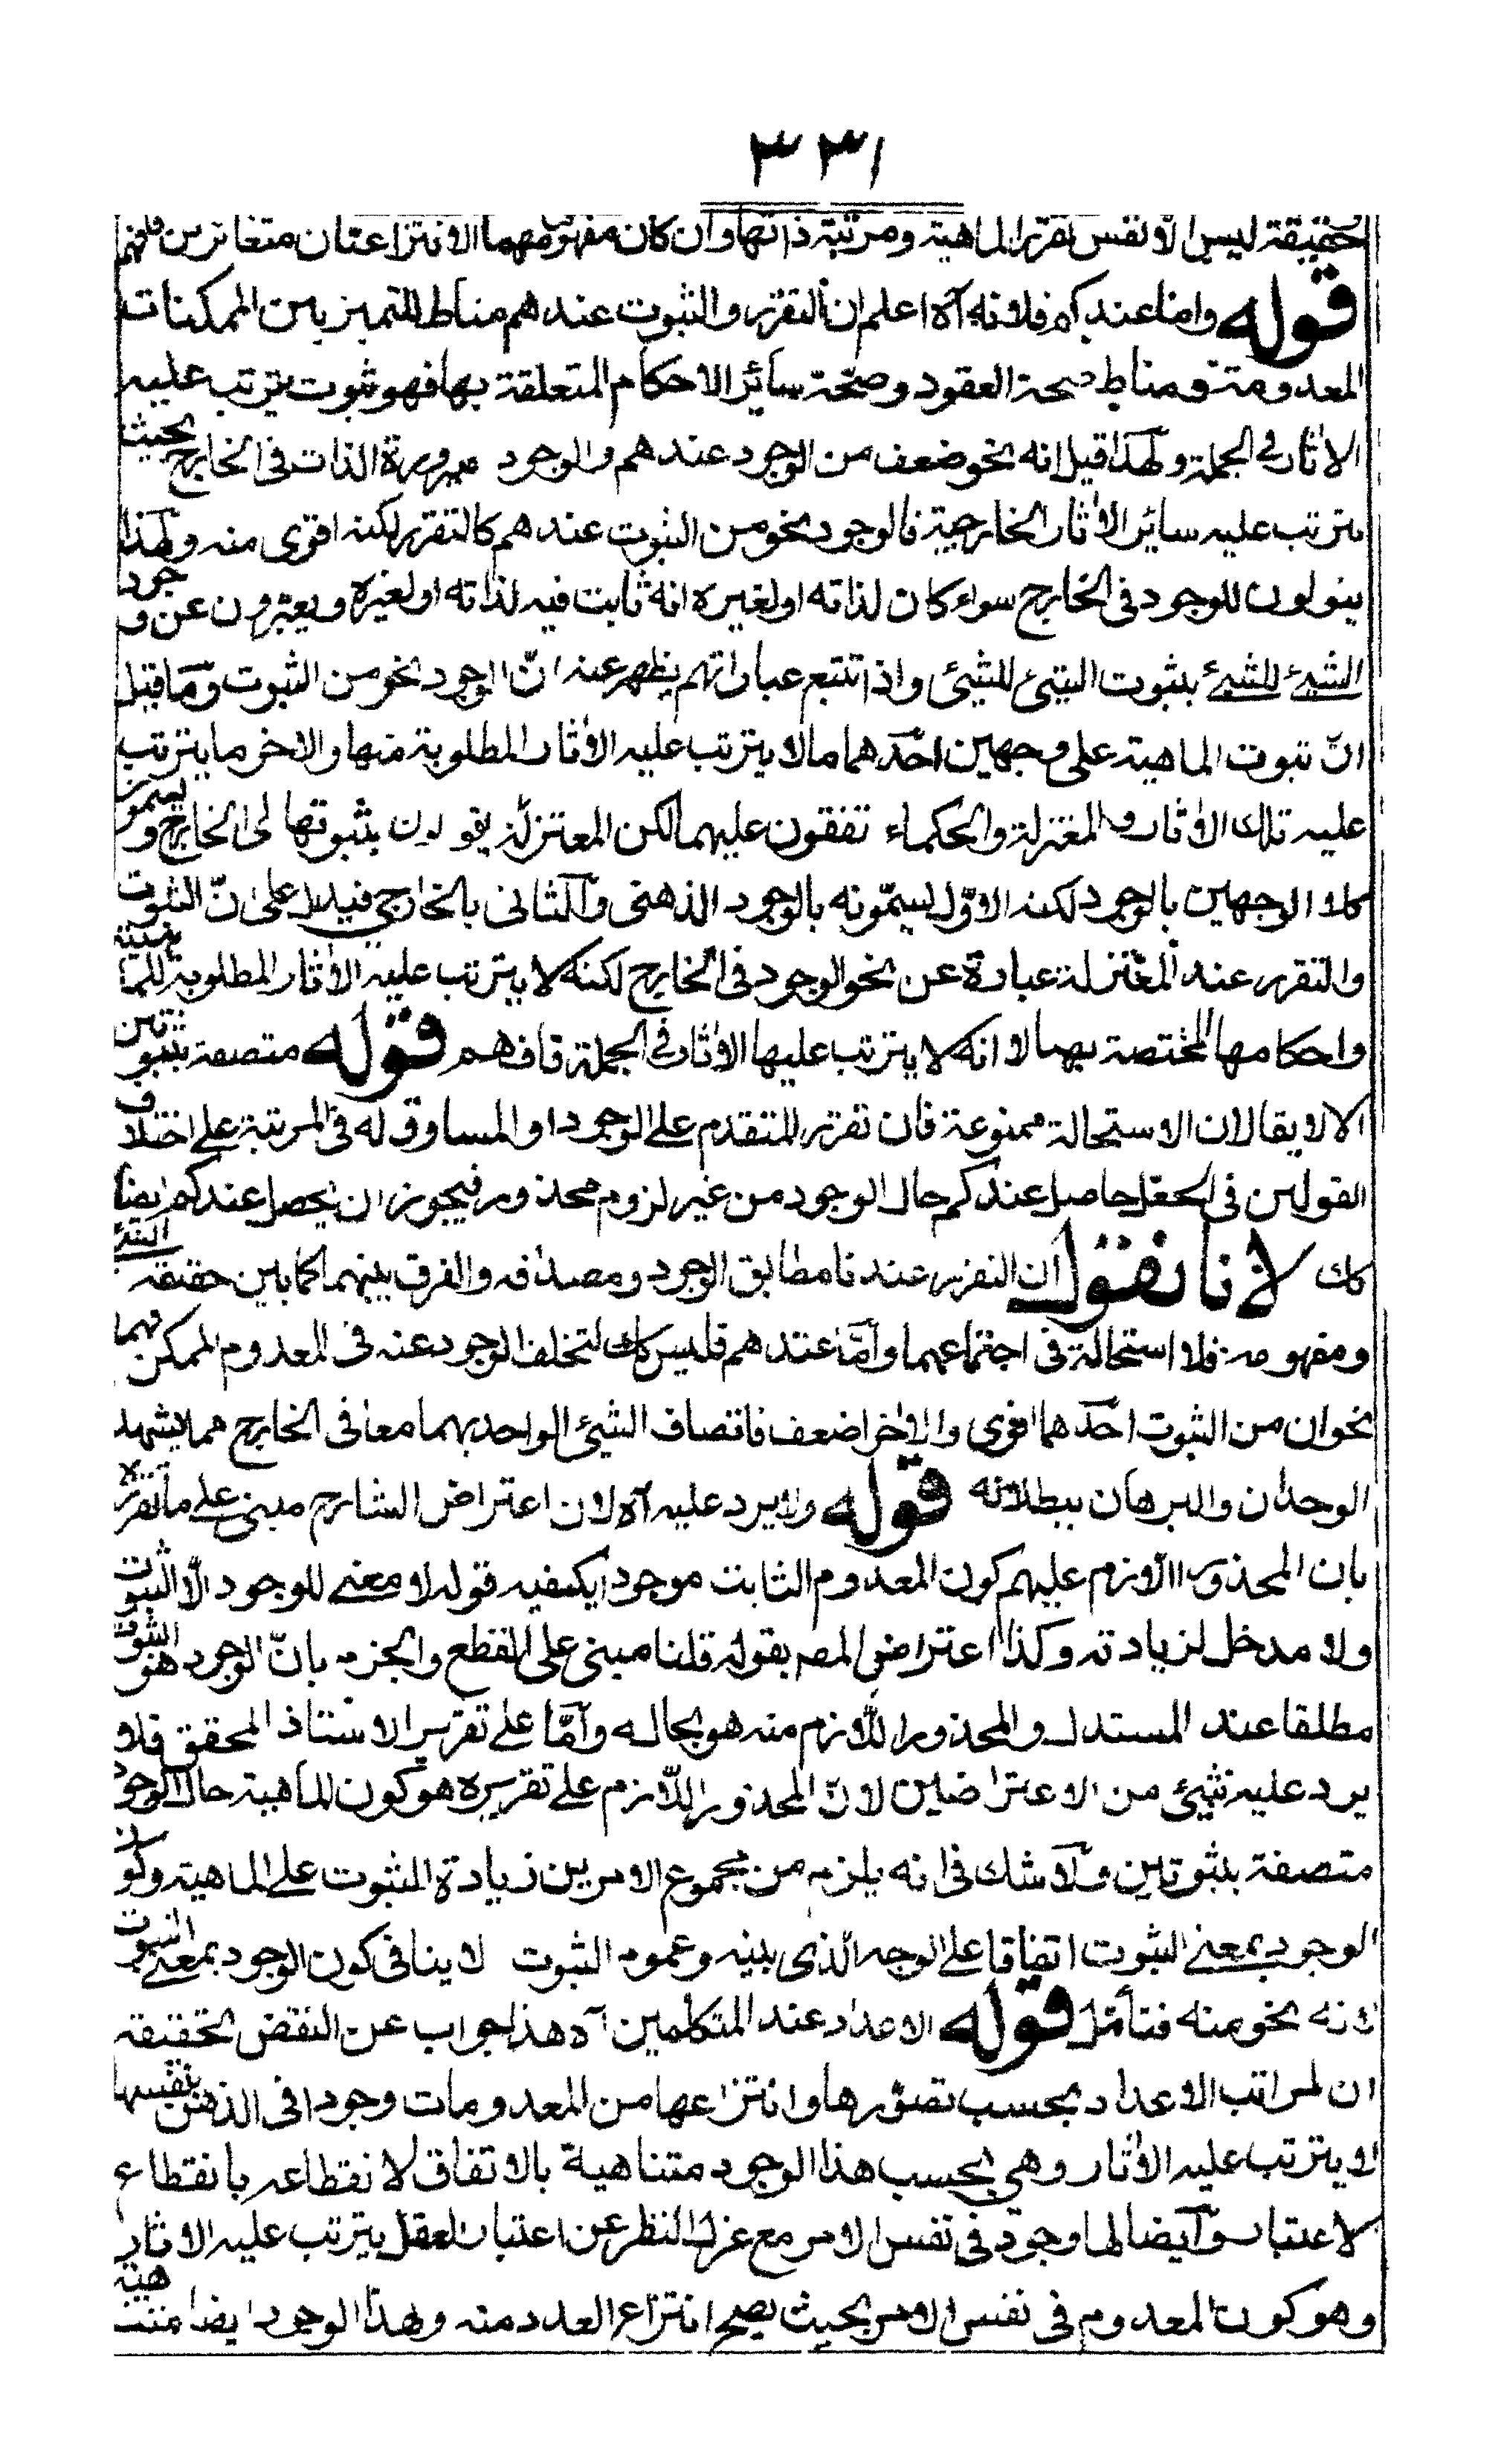 ٣٣١
حقيقة ليس الا نفس تقرر الماهية ومرتبة ذاتها وان كان مفهومهما الانتزاعيان متغائرين فافهم
قوله واما عندكم فلانه آه اعلم ان التقرر والثبوت عندهم مناط للتميز بين الممكنات
المعدومة ومناط صحة العقود وصحة سائر الاحكام المتعلقة بها فهو ثبوت يترتب عليه
الاثار في الجملة ولهذا قيل انه نحو ضعف من الوجود عندهم والوجود صيرورة الذات في الخارج بحيث
يترتب عليه سائر الاثار الخارجية فالوجود نحو من الثبوت عندهم كالتقرر لكنه اقوى منه ولهذا
يقولون للوجود في الخارج سواء كان لذاته او لغيره انه ثابت فيه لذاته او لغيره ويعبرون عن وجود
الشيئ للشيئ بثبوت الشيئ للشيئ واذا تتبع عباراتهم يظهر عنه ان الوجود نحو من الثبوت وما قيل
ان ثبوت الماهية على وجهين احدهما ما لا يترتب عليه الاثار المطلوبة منها والاخر ما يترتب
عليه تلك الاثار والمعتزلة والحكماء تفقون عليهما لكن المعتزلة يقولون بثبوتها في الخارج ويسمون
كلا الوجهين بالوجود لكنه الاول يسمونه بالوجود الذهنى والثانى بالخارجي فيدل على ان الثبوت
والتقرر عند المعتزلة عبارة عن نحو الوجود في الخارج لكنه لا يترتب عليه الاثار المطلوبة للماهية
واحكامها المختصة بها لا انه لا يترتب عليها الاثار في الجملة فافهم قوله متصفة بثبوتين
الا لا يقال ان الاستحالة ممنوعة فان تقرر المتقدم على الوجود او المساوق له في المرتبة على اختلاف
القولين في الجعل حاصل عندكم حال الوجود من غير لزوم محذور فيجوز ان يحصل عندكم ايضا
كك لانا نقول ان التقرر عندنا مطابق الوجود ومصداقه والفرق بينهما كما بين حقيقة الشيئ
ومفهومه فلا استحالة في اجتماعهما واما عندهم فليس كك لتخلف الوجود عنه في المعدوم الممكن فهما
نحوان من الثبوت احدهما اقوى والاخر اضعف فاتصاف الشيئ الواحد بهما معا في الخارج مما يشهد
الوجدان والبرهان ببطلانه قوله ولا يرد عليه آه لان اعتراض الشارح مبنى على ما تقرر
بان المحذور اللازم عليهم كون المعدوم الثابت موجودا يكفيه قوله لا معنى للوجود الا الثبوت
ولا مدخل لزيادته وكذا اعتراض المصـ بقوله قلنا مبنى على القطع والجزم بان الوجود هو الثبوت
مطلقا عند المستدل والمحذور اللازم منه هو بحاله واما على تقرير الاستاذ المحقق فلا
يرد عليه شيئ من الاعتراضين لان المحذور اللازم على تقريره هو كون الماهية حال الوجود
متصفة بثبوتين ولا شك في انه يلزم من مجموع الامرين زيادة الثبوت على الماهية وكون
الوجود بمعنى الثبوت اتفاقا على الوجه الذى بينه وعموم الثبوت لا ينافى كون الوجود بمعنى الثبوت
لانه نحو منه فتأمل قوله الاعداد عند المتكلمين آه هذا جواب عن النقض تحقيقه
ان لمراتب الاعداد بحسب تصورها وانتزاعها من المعدومات وجودا في الذهن بنفسها
لا يترتب عليه الاثار وهي بحسب هذا الوجود متناهية بالاتفاق لانقطاعه بانقطاع
الاعتبار وايضا لها وجود في نفس الامر مع عزل النظر عن اعتبار العقل يترتب عليه الاثار
وهو كون المعدوم في نفس الامر بحيث يصح انتزاع العدد منه ولهذا الوجود ايضا متناهية